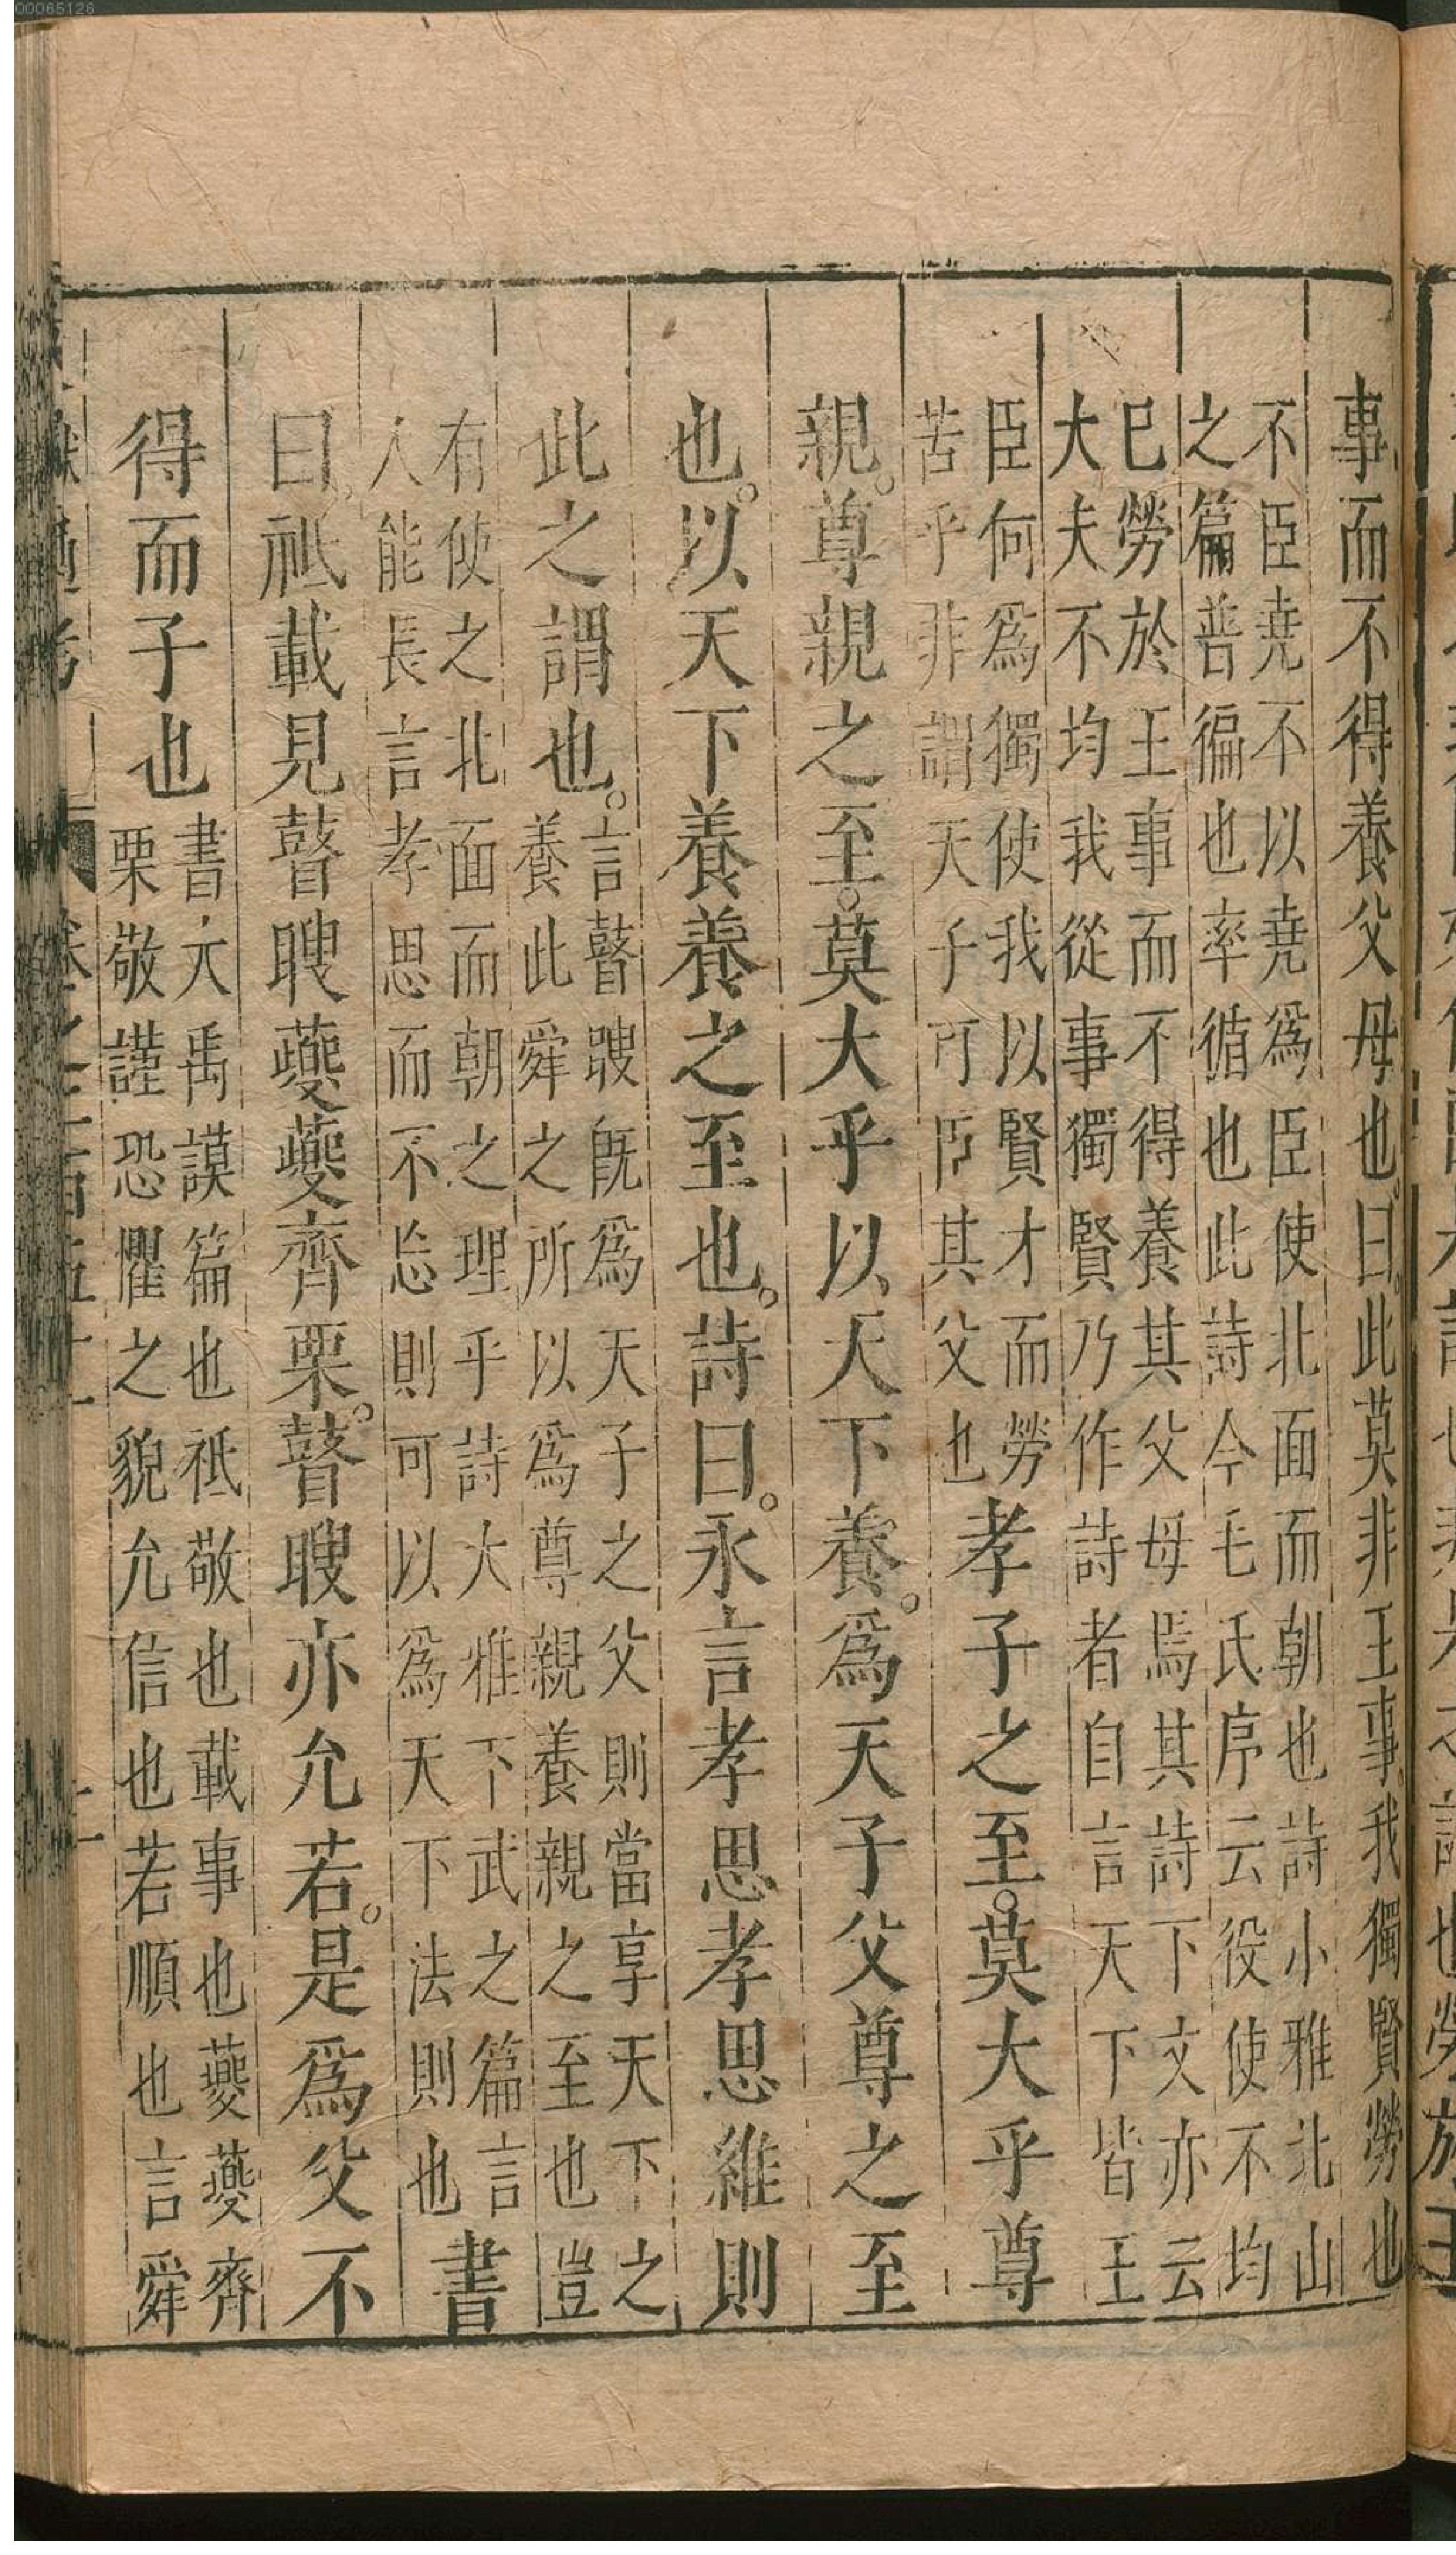 事而不得養父母也曰此莫非王事我獨賢勞也
不臣堯不以堯爲臣使北面而朝也詩小雅北山
之篇普徧也率循也此詩今毛氏序云役使不均
已勞於王事而不得養其父母焉其詩下文亦云
大夫不均我從事獨賢乃作詩者自言天下皆王
臣何爲獨使我以賢才而勞
苦乎非謂天子可臣其父也
孝子之至莫大乎尊
親尊親之至莫大乎以天下養爲天子父尊之至
也以天下養養之至也詩曰永言孝思孝思維則
此之謂也
言瞽瞍旣爲天子之父則當享天下之
養此舜之所以爲尊親養親之至也豈
有使之北面而朝之理乎詩大雅下武之篇言
人能長言孝思而不忘則可以爲天下法則也
書
曰祗載見瞽瞍夔夔齊栗瞽瞍亦允若是爲父不
得而子也
書大禹謨篇也祗敬也載事也夔夔齊
栗敬謹恐懼之貌允信也若順也言舜
00065126